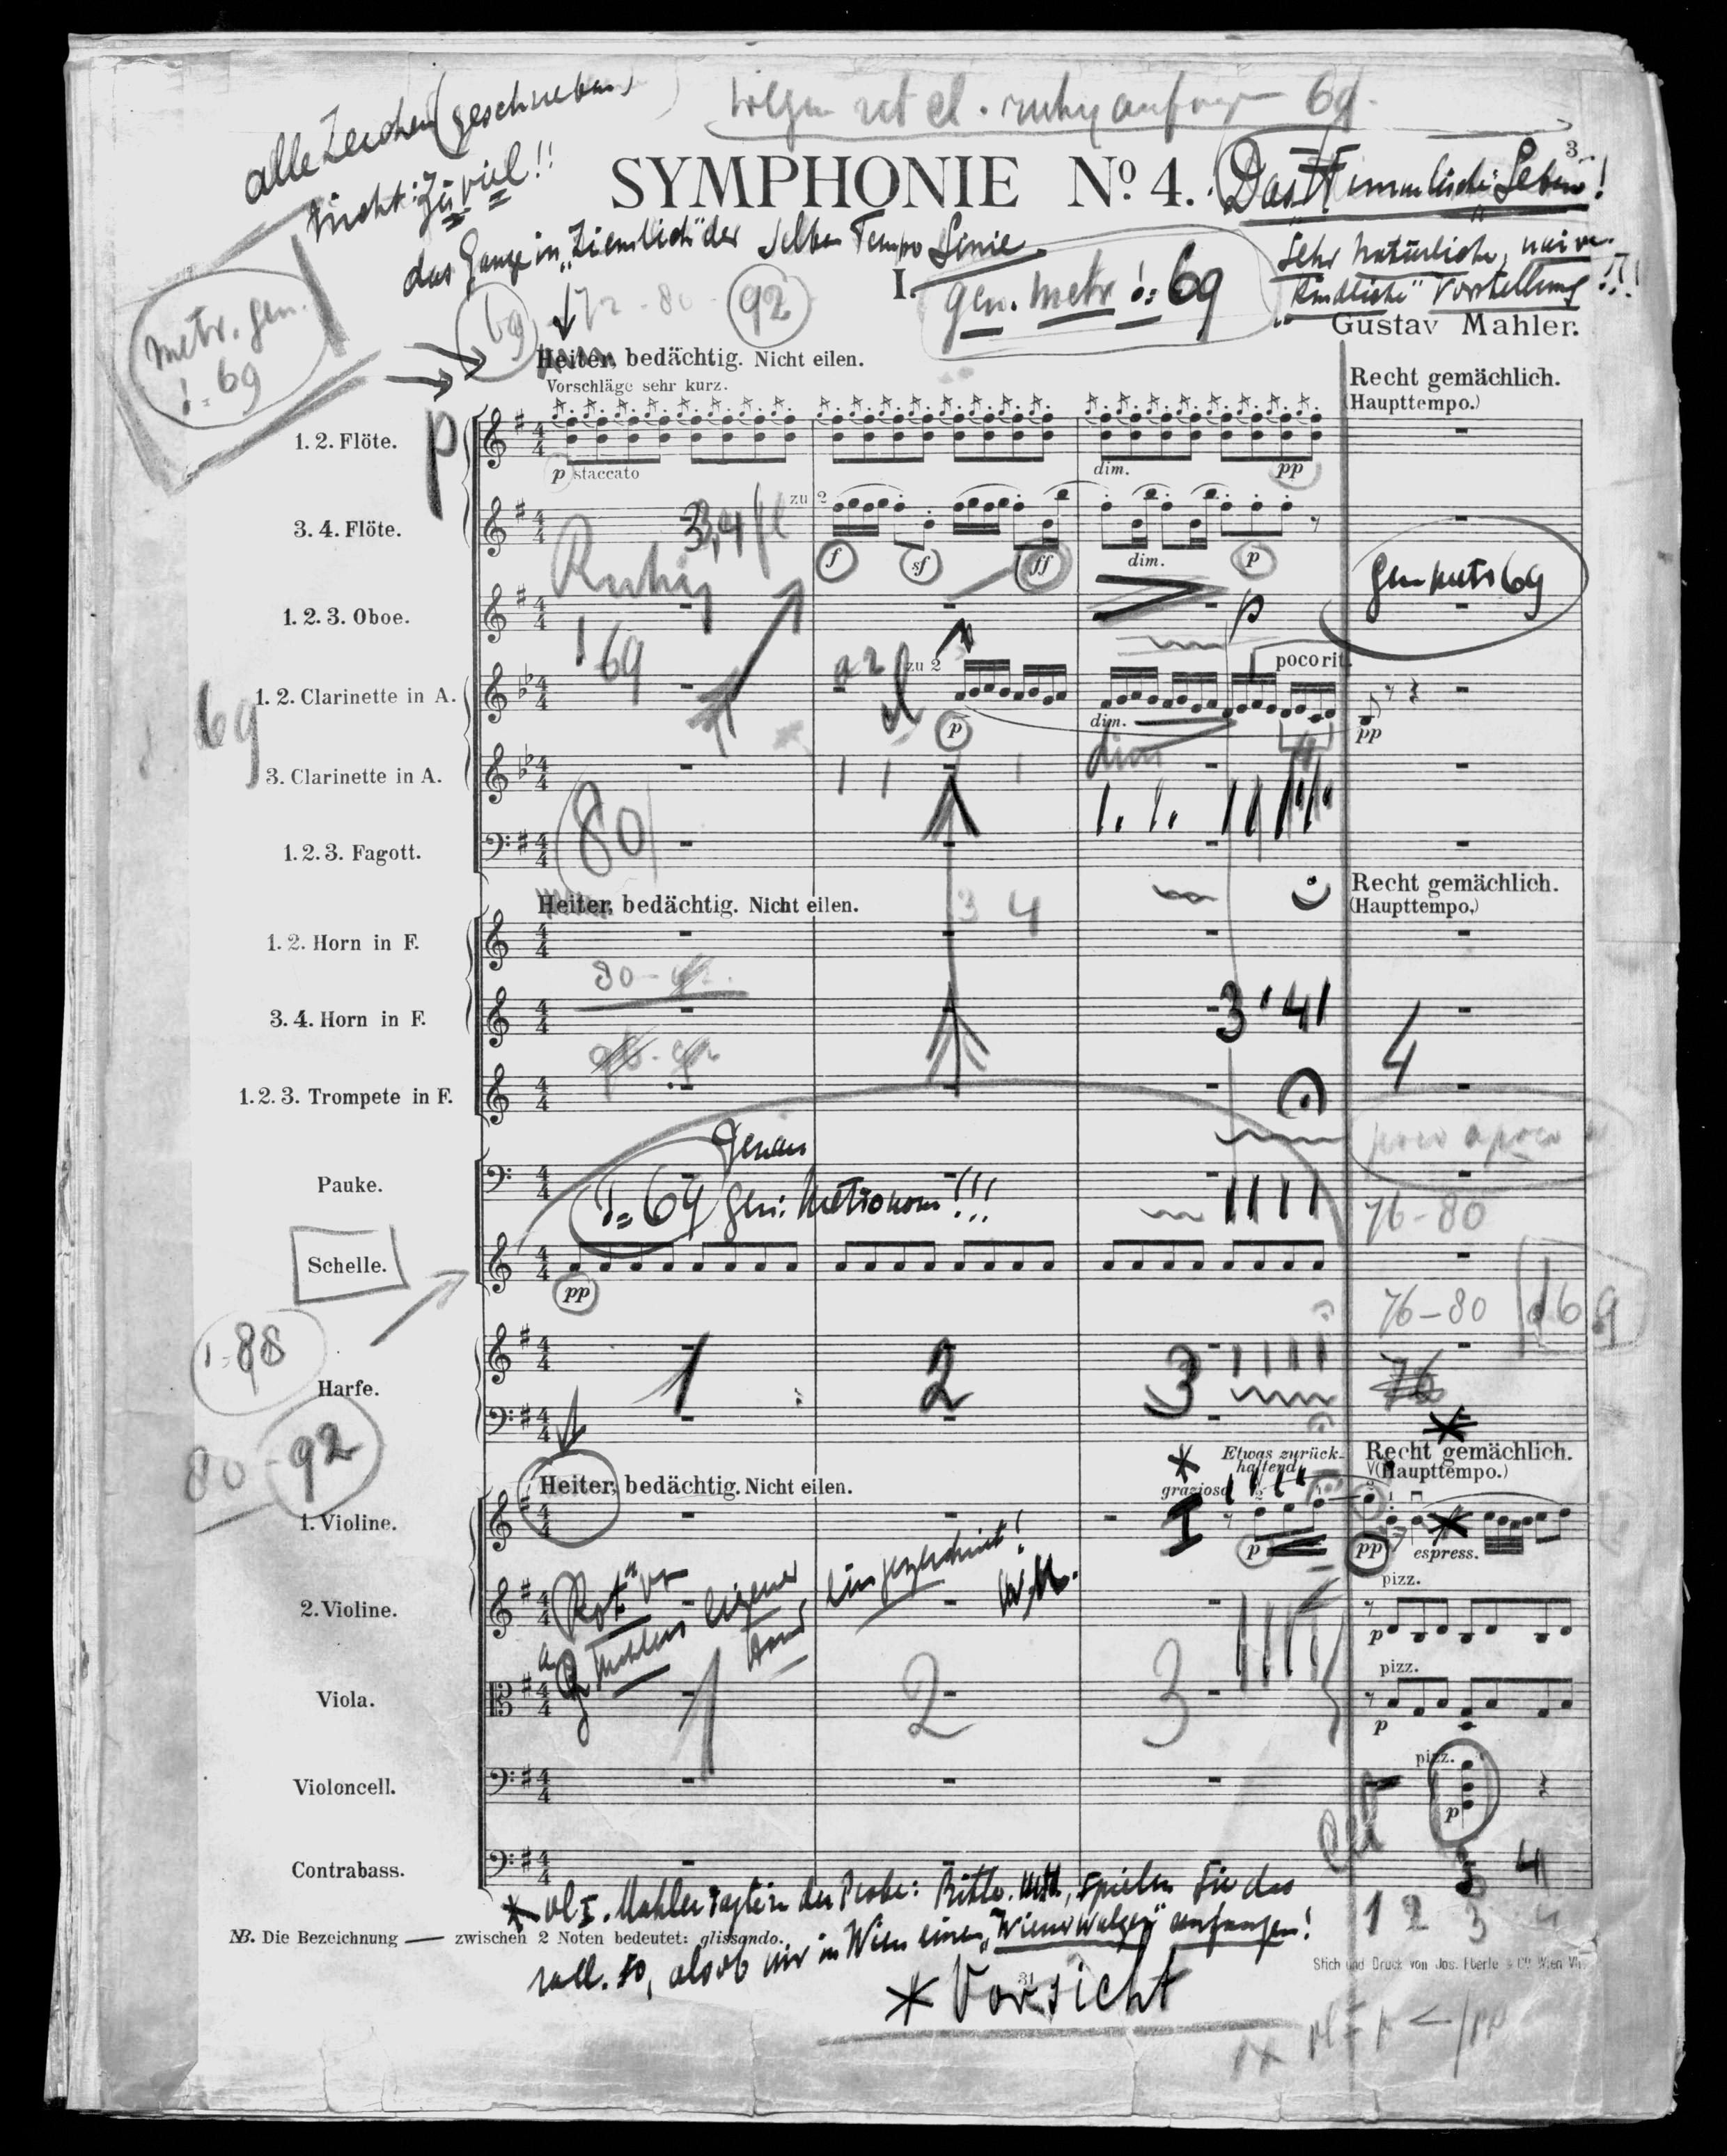 alle Zeichen (geschrieben)
nicht: zu viel!!
ruhig anfangen 69.
3
SYMPHONIE No 4. Das Himmlische Leben!
das Ganze in "ziemlich" der selben Tempo Linie
Sehr natürliche, naive
"kindliche" Vorstellung!!!
I. gen. Metr 69
Gustav Mahler.
metr. gen.
= 69
69 72 - 80 - 92
Heiter, bedächtig. Nicht eilen.
Vorschläge sehr kurz.
Recht gemächlich.
(Haupttempo.)
1. 2. Flöte.
p
p staccato
dim.
pp
3. 4. Flöte.
3, 4 fl
zu 2
f sf ff dim. p
Ruhig
1. 2. 3. Oboe.
p
gen metr 69
69
69
1. 2. Clarinette in A.
a 2
zu 2
p
dim.
poco rit.
pp
3. Clarinette in A.
dim
80
1. 2. 3. Fagott.
Heiter, bedächtig. Nicht eilen.
3 4
Recht gemächlich.
(Haupttempo.)
1. 2. Horn in F.
80 -
3. 4. Horn in F.
3 4
4
1. 2. 3. Trompete in F.
poco a poco
Genau
Pauke.
= 69 gen: Metronom!!!
76 - 80
Schelle.
pp
76 - 80
69
= 88
Harfe.
1 2 3
76
80 - 92
Heiter, bedächtig. Nicht eilen.
Etwas zurück-
haltend
grazioso
Recht gemächlich.
(Haupttempo.)
1. Violine.
I
p
pp
espress.
"Rot" von
G. Mahlers eigener Hand eingezeichnet!
W.M.
2. Violine.
pizz.
p
Viola.
1 2 3
pizz.
p
Violoncell.
pizz.
p
Cel
Contrabass.
3 4
* Vl I. Mahler sagte in der Probe: Bitte, spielen Sie das
1 2 3 4
NB. Die Bezeichnung — zwischen 2 Noten bedeutet: glissando.
rall. so, als ob wir in Wien einen "Wiener Walzer" anfangen!
Stich und Druck von Jos. Eberle & Co. Wien VII.
31
* Vorsicht